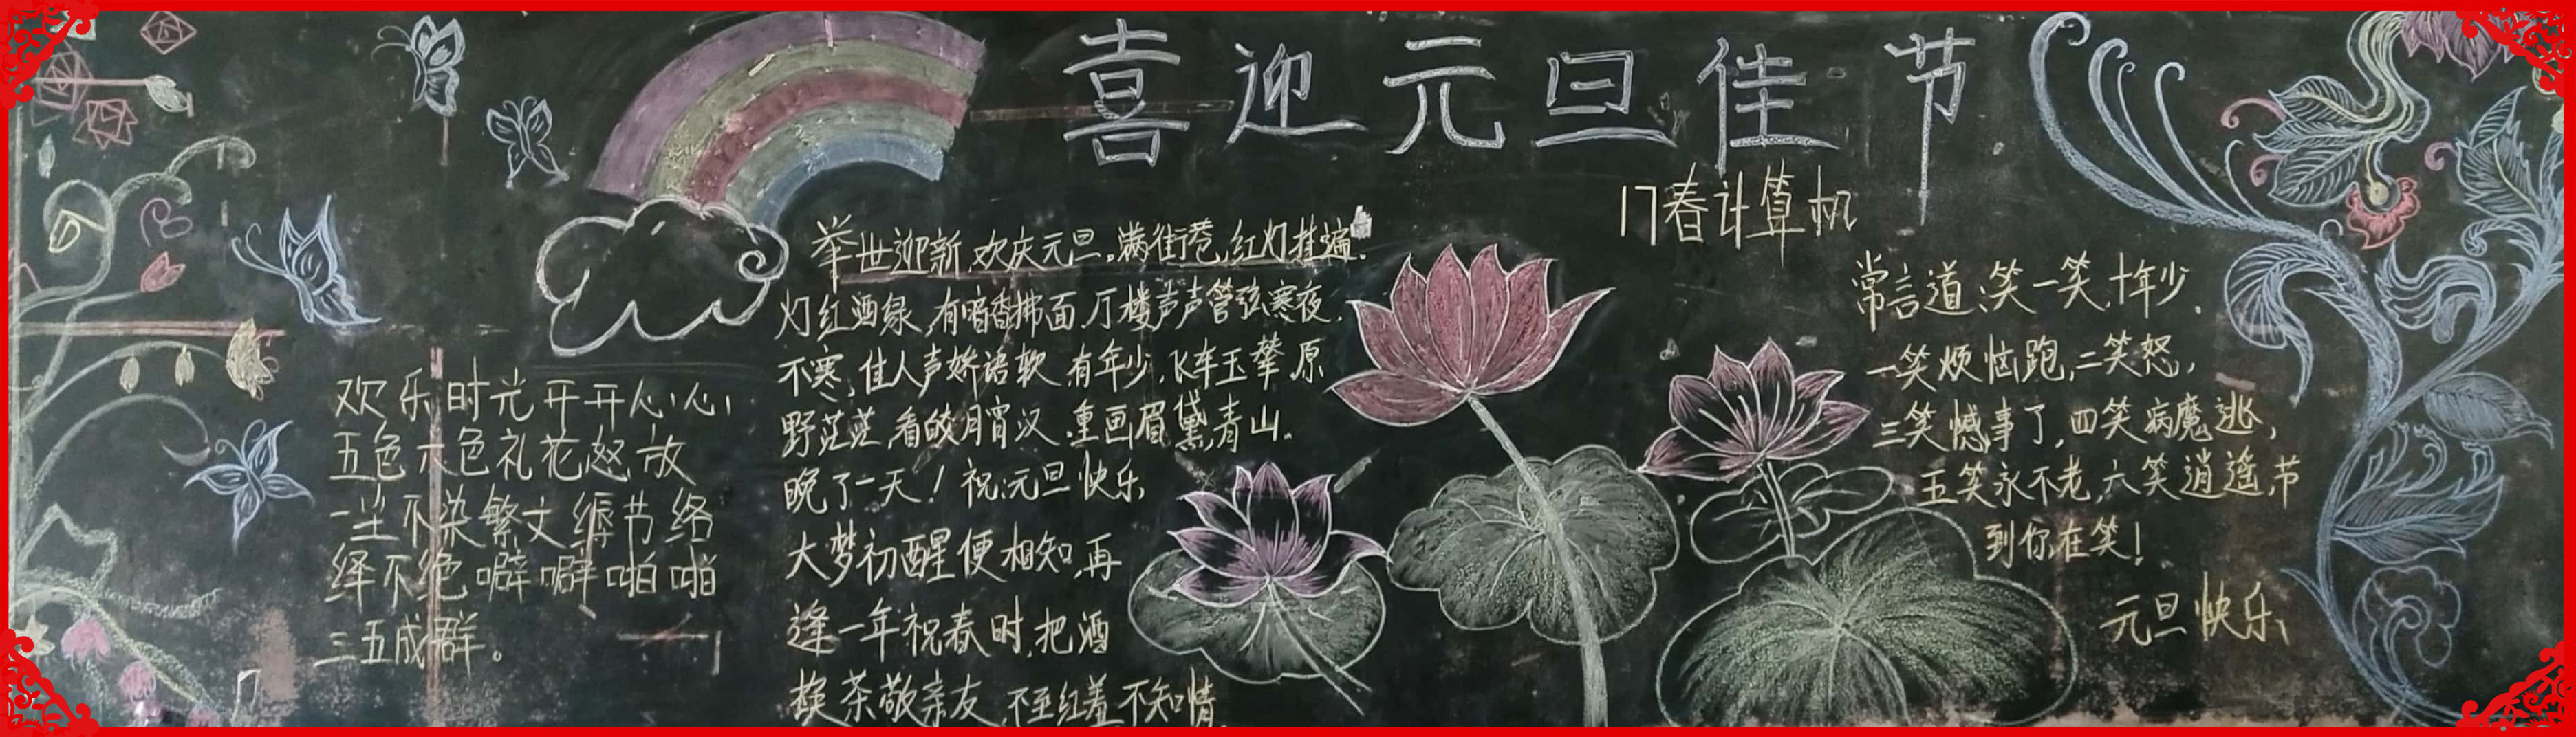 喜迎元旦佳节
17春计算机
欢乐时光开开心心
五色六色礼花怒放
一尘不染繁文缛节络
绎不绝噼噼啪啪
三五成群。
举世迎新,欢庆元旦。满街巷,红灯挂遍.
灯红酒绿,有暗香拂面,厅楼声声管弦寒夜.
不寒,佳人声娇语软,有年少,飞车玉辇,原
野茫茫,看皎月宵汉,重画眉黛,青山.
晚了一天!祝:元旦快乐
大梦初醒便相知,再
逢一年祝春时,把酒
换茶敬亲友,不至红羞不知情
常言道:笑一笑,十年少.
一笑烦恼跑,二笑怒,
三笑憾事了,四笑病魔逃,
五笑永不老,六笑逍遥,节
到你在笑!
元旦快乐